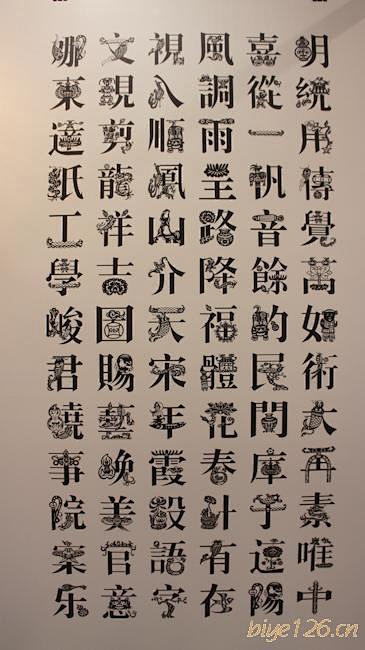 娜文視風喜明
東現入調從統
達剪順雨一用
紙龍鳳呈帆傳
工祥山路音覺
學吉介降餘萬
峻圖天福的如
君賜宋體民術
曉藝年花間大
事晚霞春庫
院美設計于素
案官語有唯
樂意字在陽中
biye126.cn